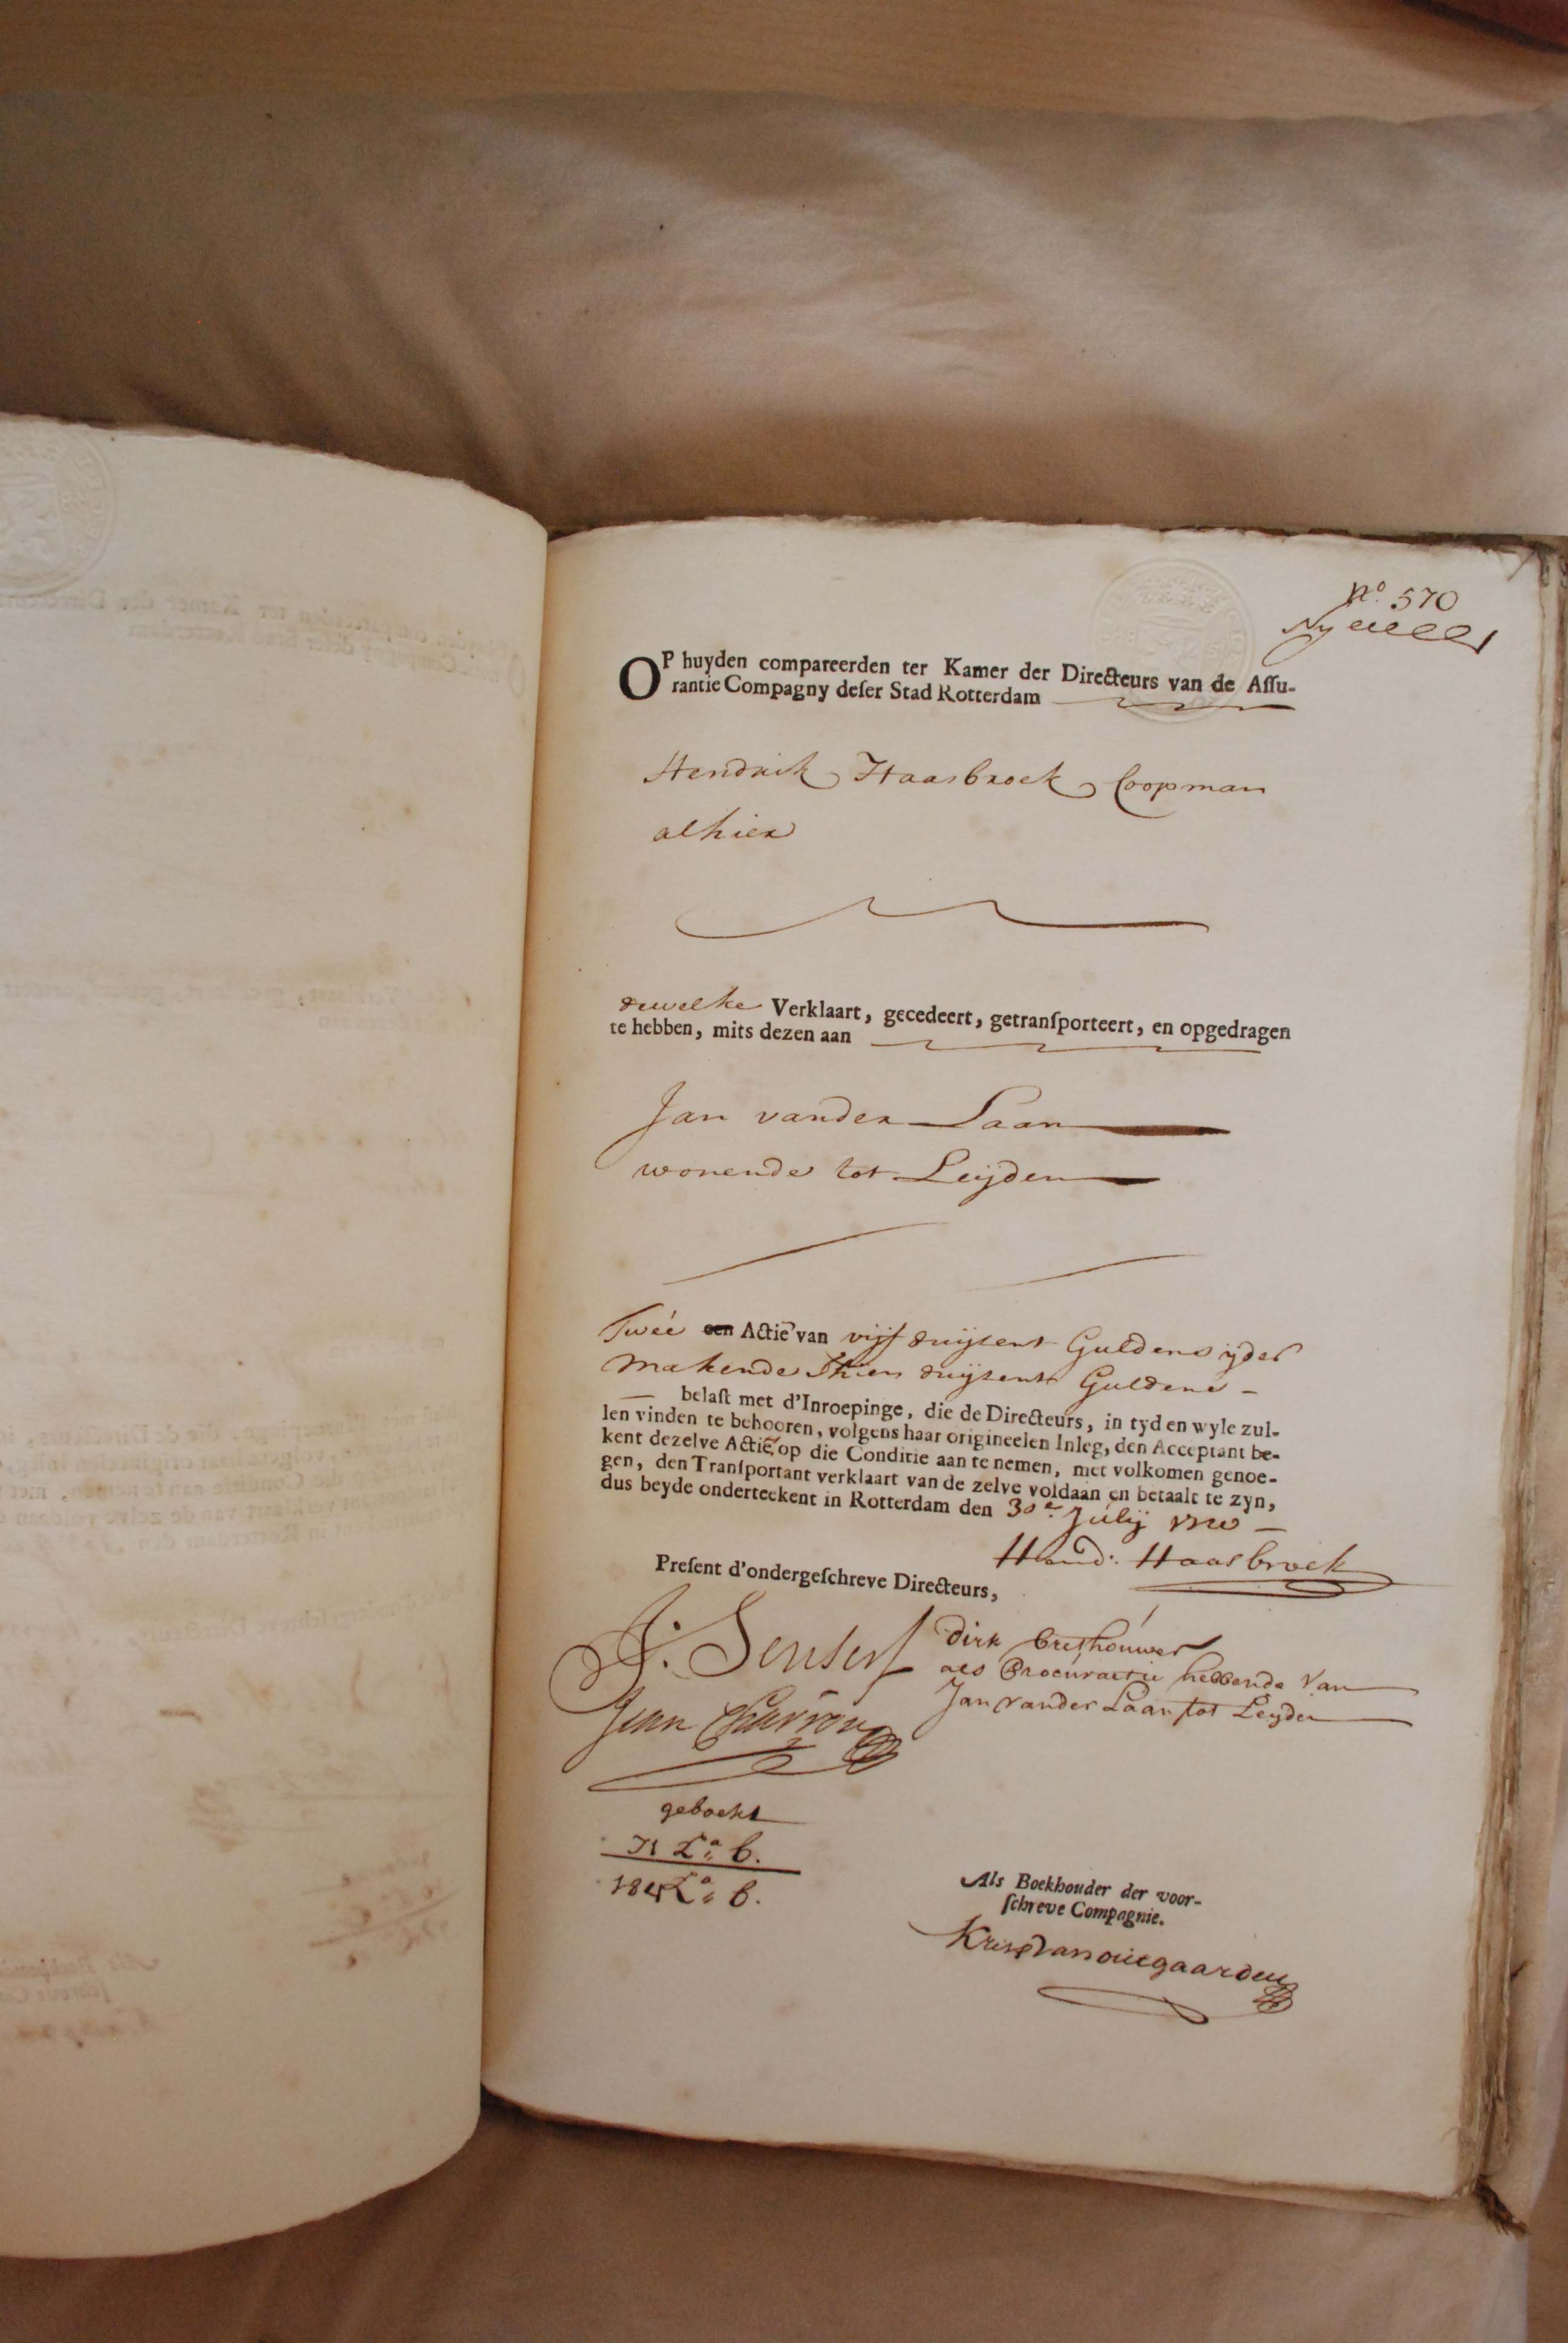 No. 570
OP huyden compareerden ter Kamer der Directeurs van de Aſſu-
rantie Compagny deſer Stad Rotterdam
Hendrick Haasbroek Coopman
alhier
dewelke Verklaart, gecedeert, getranſporteert, en opgedragen
te hebben, mits dezen aan
Jan vander Laan
wonende tot Leijden
Twée een Actie van vijf duijsent Guldens ijder
Makende Thien duijsent Guldens
belaſt met d'Inroepinge, die de Directeurs, in tyd en wyle zul-
len vinden te behooren, volgens haar origineelen Inleg, den Acceptant be-
kent dezelve Actie op die Conditie aan te nemen, met volkomen genoe-
gen, den Tranſportant verklaart van de zelve voldaan en betaalt te zyn,
dus beyde onderteekent in Rotterdam den 30e Julij 1720
Hend: Haasbroek
Preſent d'ondergeſchreve Directeurs,
J: Senserf
Dirk
als Procúratie hebbende van
Jan vander Laan tot Leyden
Jean Charron
geboekt
71 La: b.
184 La: b.
Als Boekhouder der voor-
ſchreve Compagnie.